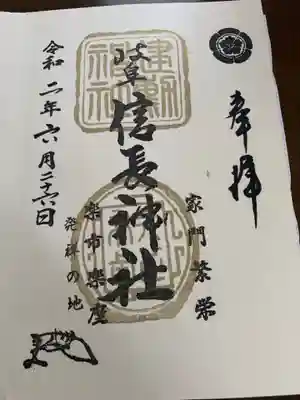 奉拝
家門繁栄
岐阜
信長神社
楽市楽座
発祥の地
令和二年六月二十六日
建勲
神社